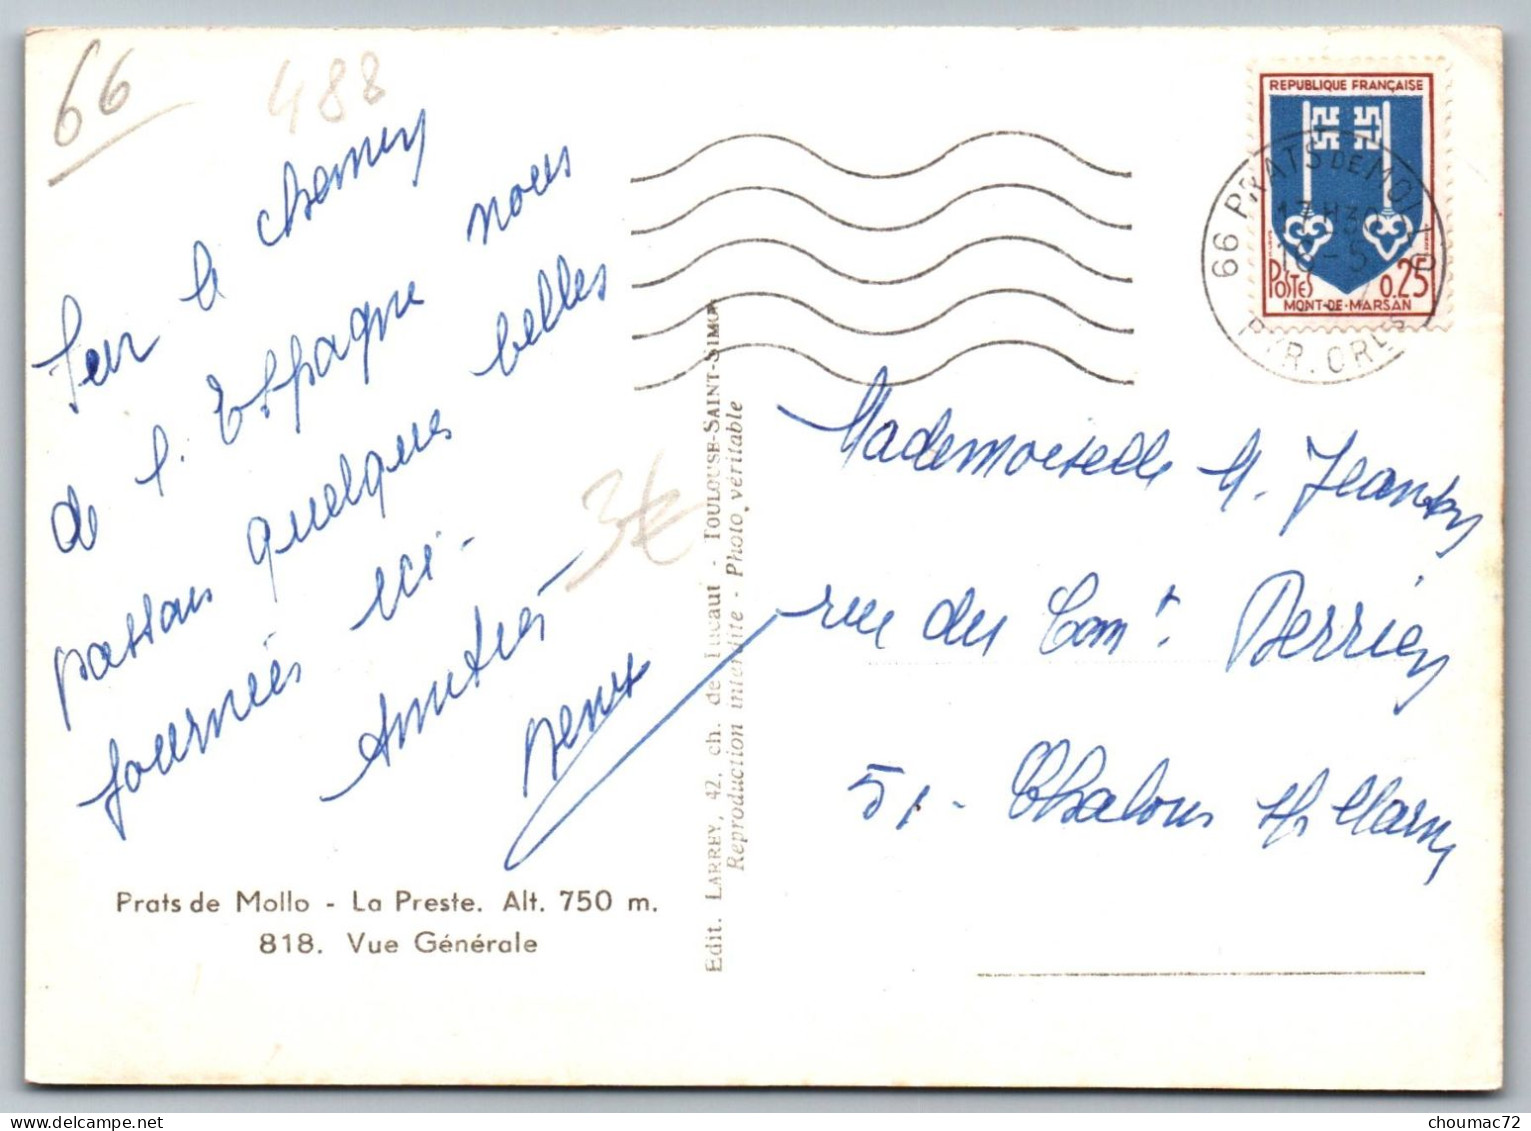 66
488
Sur le chemin
de l'Espagne nous
passons quelques belles
journées ici.
Amitiés
3€
Prats de Mollo - La Preste. Alt. 750 m.
818. Vue Générale
Edit. LARREY, 42, ch. de Tucaut - TOULOUSE-SAINT-SIMON
Reproduction interdite - Photo véritable
REPUBLIQUE FRANÇAISE
POSTES
0.25
MONT-DE-MARSAN
66 PRATS DE MOLLO
17H30
16-5
PYR. ORLES
Mademoiselle M.
rue du Comt. Derrien
51 - Chalons s/ Marne
choumac72